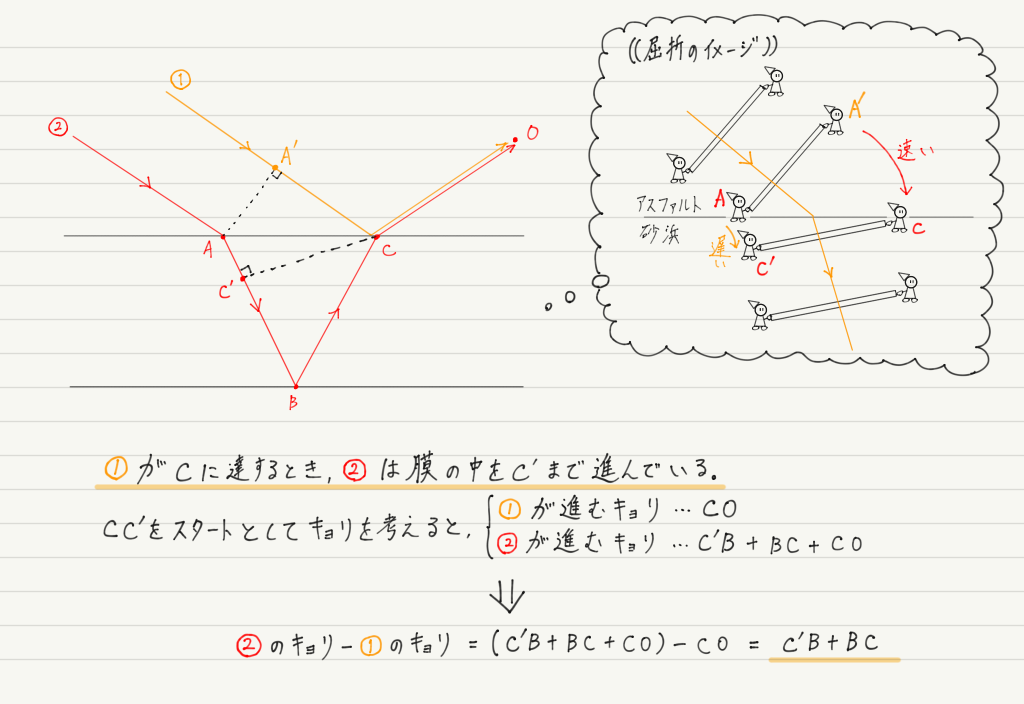 ((屈折のイメージ))
①
②
A'
O
A
C
C'
B
A'
速い
A
アスファルト
砂浜
遅い
C'
C
①がCに達するとき,②は膜の中をC'まで進んでいる.
CC'をスタートとしてキョリを考えると,
①が進むキョリ…CO
②が進むキョリ…C'B+BC+CO
②のキョリ-①のキョリ=(C'B+BC+CO)-CO=C'B+BC